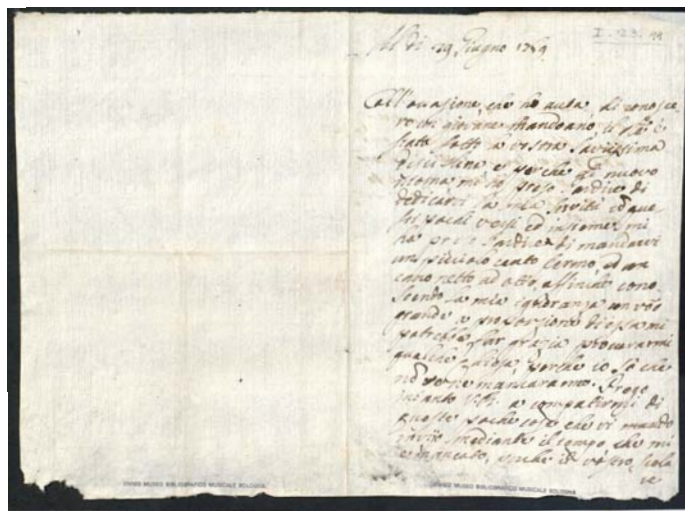 I. 23. 11
Al di 29 Giugno 1749
Coll'occasione che ho auta di conosce
re un giovane il è
stato sotto a vostra savissima
disciplina e perche di nuovo
ritorna mi ho preso l'ardire di
dedicarvi la mia servitù ed que
sti pochi versi ed insieme mi
ho preso l'ardire di mandarvi
un picciolo canto fermo ed un
canonetto ad otto, affinche cono
scendo la mia ignoranza con
grande e proporzione di essa mi
potrebbe far grazia procurarmi
qualche perche io so che
ne mancaranno. Prego
intanto a compatirmi di
queste poche cose che vi mando
mediante il tempo che mi
è mancato, anche il vostro scola
re
CIVICO MUSEO BIBLIOGRAFICO MUSICALE BOLOGNA
CIVICO MUSEO BIBLIOGRAFICO MUSICALE BOLOGNA